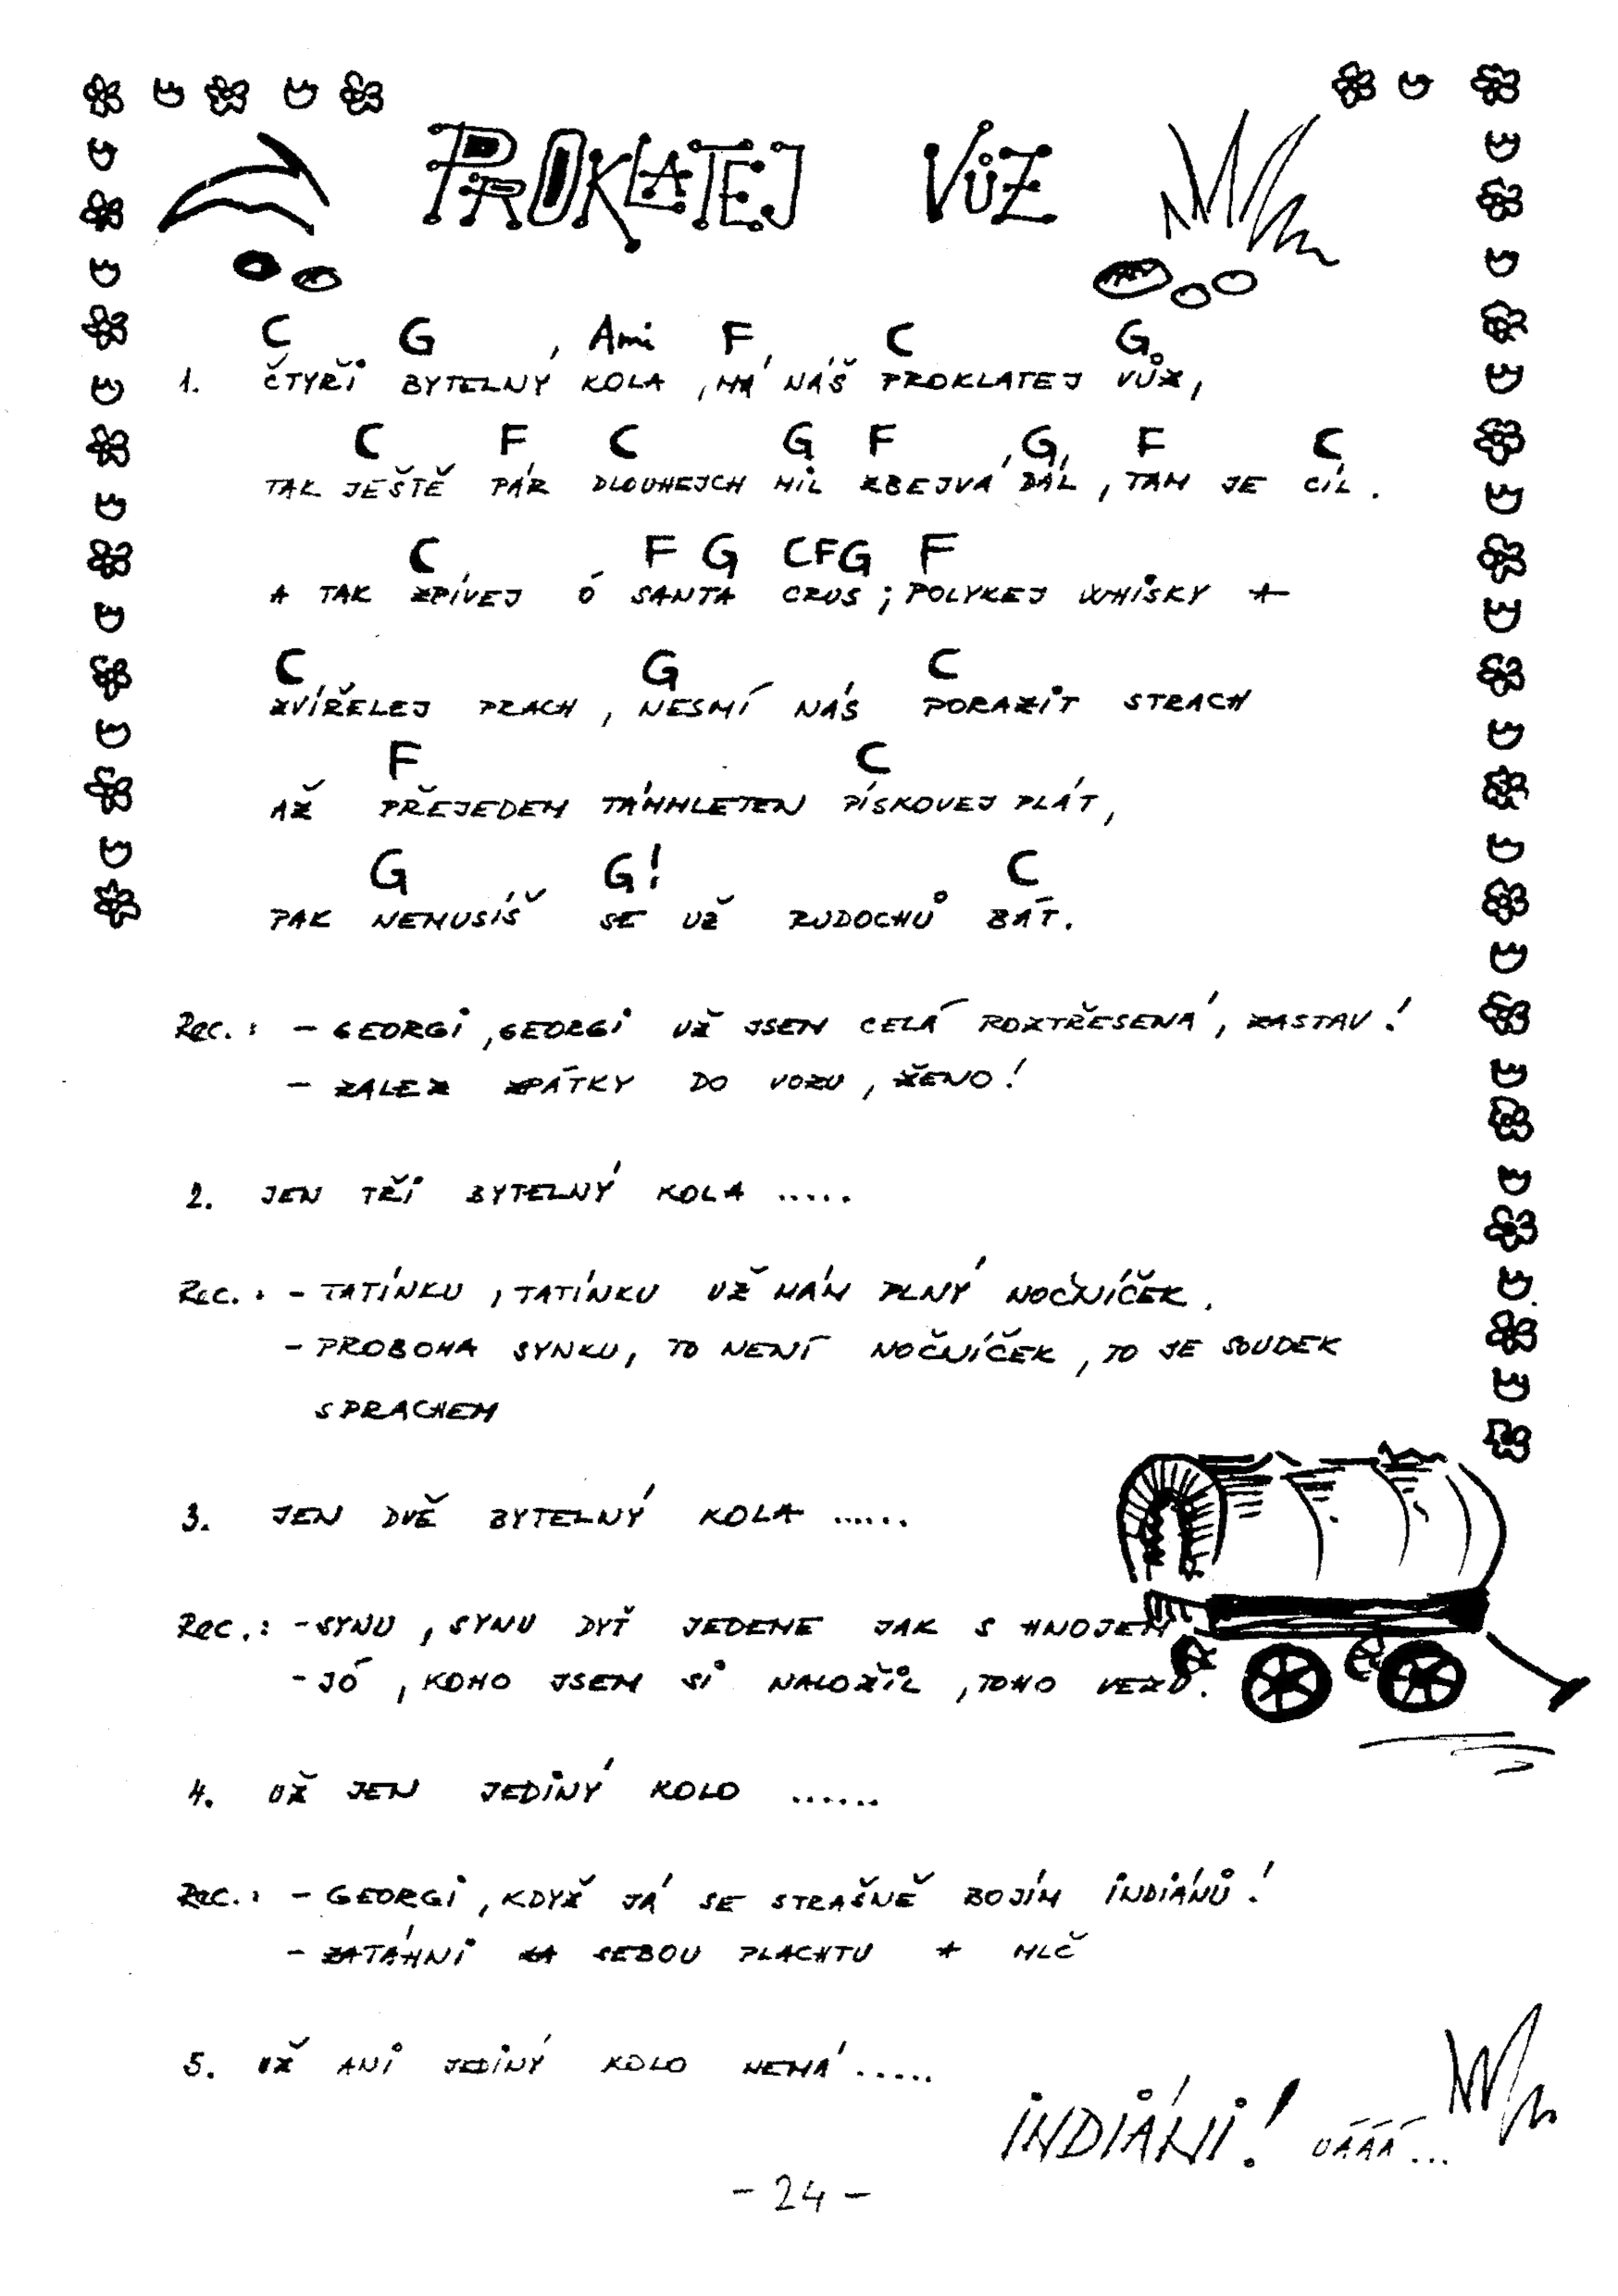 PROKLATEJ VŮZ
C G Ami F C G
1. ČTYŘI BYTELNÝ KOLA, MÁ NÁŠ PROKLATEJ VŮZ,
C F C G F G F C
TAK JEŠTĚ PÁR DLOUHEJCH MIL ZBEJVÁ DÁL, TAM JE CÍL.
C F G CFG F
A TAK ZPÍVEJ Ó SANTA CRUS; POLYKEJ WHISKY A
C G C
ZVÍŘELEJ PRACH, NESMÍ NÁS PORAZIT STRACH
F C
AŽ PŘEJEDEM TÁMHLETEN PÍSKOVEJ PLÁT,
G G! C
PAK NEMUSÍŠ SE UŽ RUDOCHŮ BÁT.
Rec.: - GEORGI, GEORGI UŽ JSEM CELÁ ROZTŘESENÁ, ZASTAV!
- ZALEZ ZPÁTKY DO VOZU, ŽENO!
2. JEN TŘI BYTELNÝ KOLA .....
Rec.: - TATÍNKU, TATÍNKU UŽ MÁM PLNÝ NOČNÍČEK.
- PROBOHA SYNKU, TO NENÍ NOČNÍČEK, TO JE SOUDEK
S PRACHEM
3. JEN DVĚ BYTELNÝ KOLA ......
Rec.: - SYNU, SYNU DYŤ JEDEME JAK S HNOJEM
- JÓ, KOHO JSEM SI NALOŽIL, TOHO VEZU.
4. UŽ JEN JEDINÝ KOLO ......
Rec.: - GEORGI, KDYŽ JÁ SE STRAŠNĚ BOJÍM INDIÁNŮ!
- ZATÁHNI ZA SEBOU PLACHTU A MLČ
5. UŽ ANI JEDINÝ KOLO NEMÁ .....
INDIÁNI! UÁÁÁ...
- 24 -